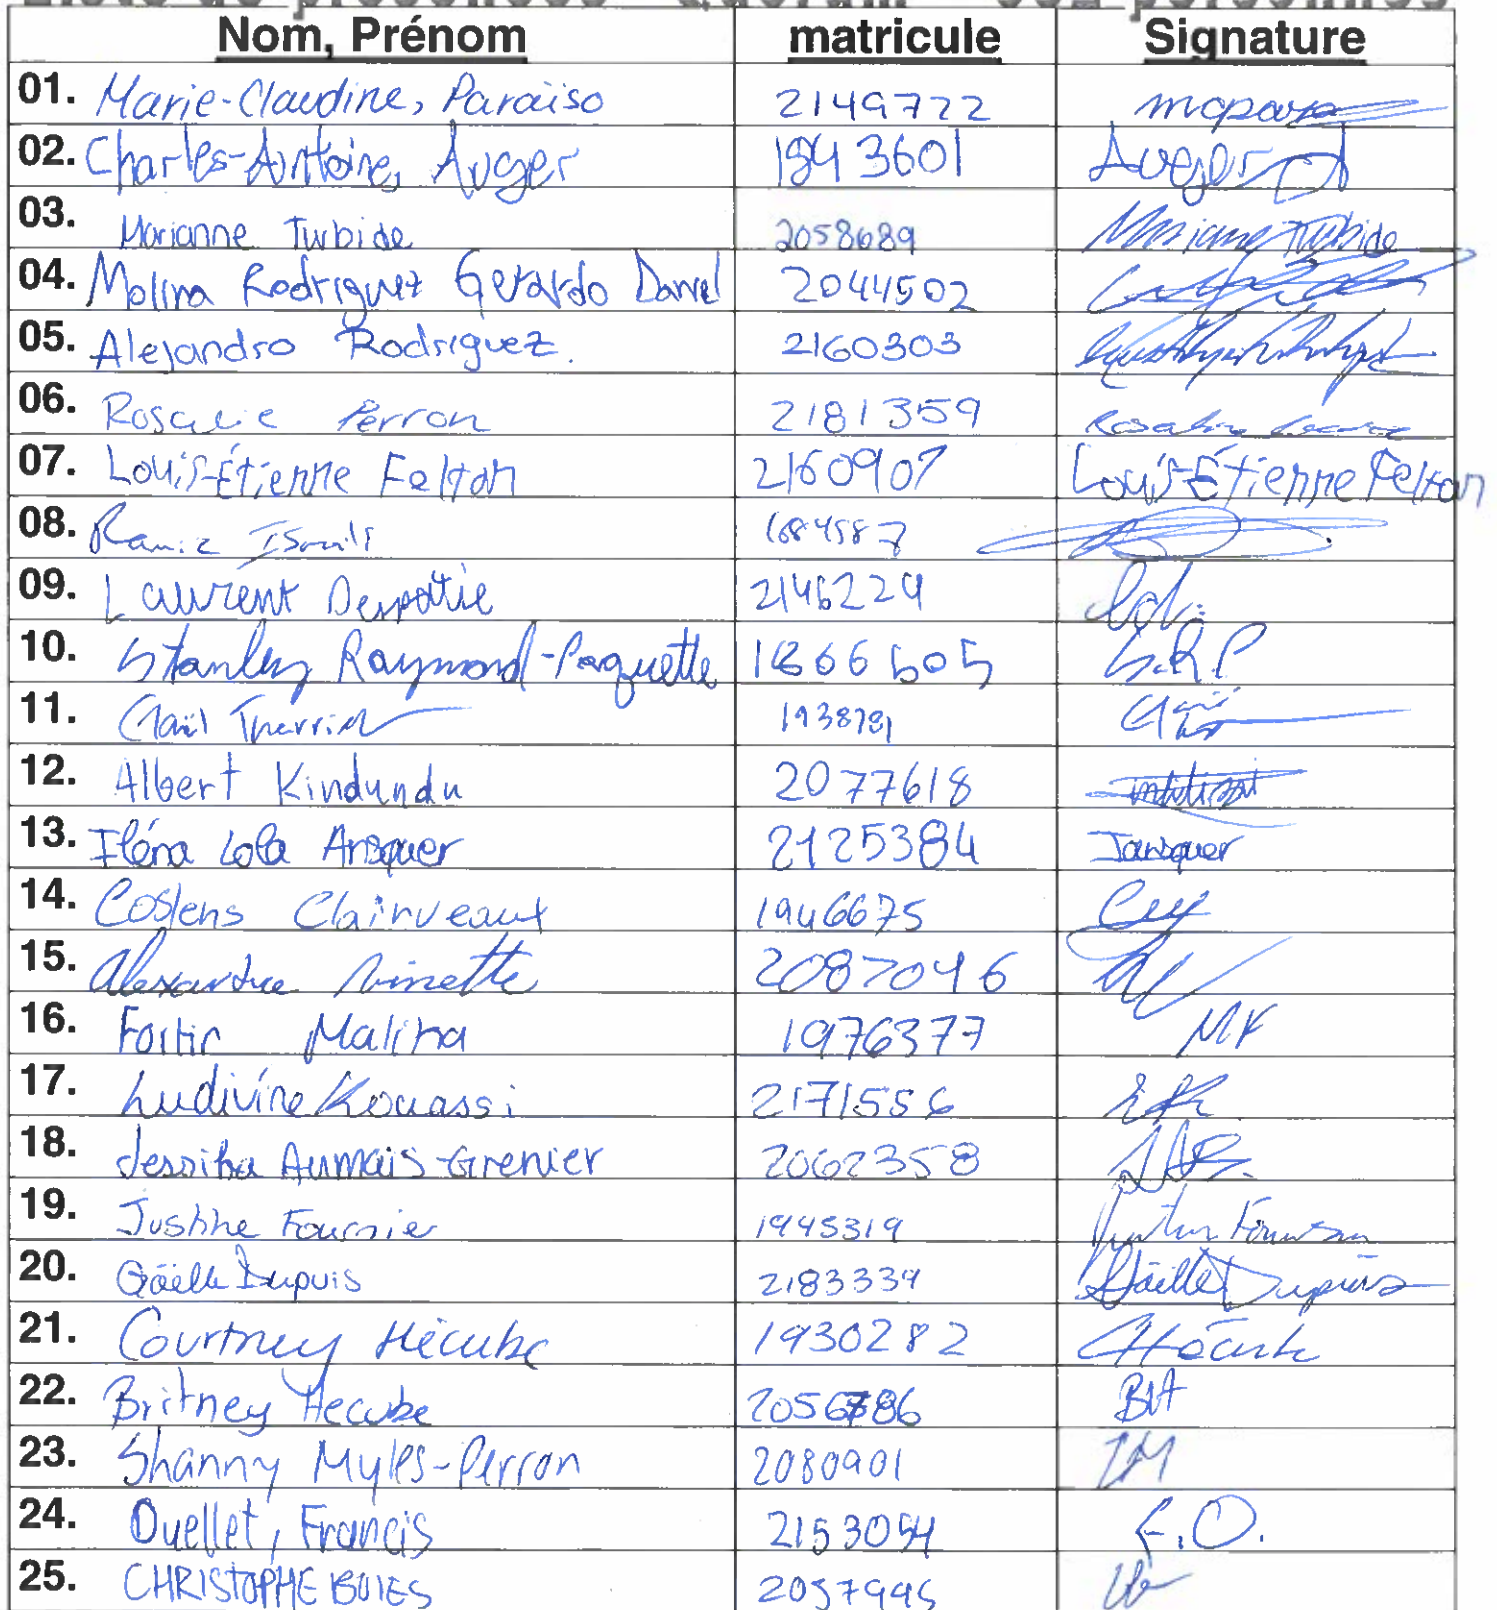 Nom, Prénom matricule Signature
01. Marie-Claudine, Paraïso 2149722
02. Charles-Antoine, Auger 1943601 Auger
03. Marianne Turbide 2058689 Marianne Turbide
04. Molina Rodriguez Gerardo Daniel 2044502
05. Alejandro Rodriguez. 2160303
06. Rosalie Perron 2181359
07. Louis-Étienne Felton 2160907 Louis-Étienne Felton
08. Ramiz Ismaili 1684587
09. Laurent Despatie 2146229
10. Stanley Raymond-Paquette 1866605 S.R.P
11. Therrien 1938781
12. Albert Kindundu 2077618
13. Iléna Lola Ansquer 2125384 Iansquer
14. Coslens Clairveaux 1946675
15. Alexandre Ninette 2087046
16. Fortin Malina 1976377 MF
17. Ludivine Kouassi 2171556
18. Jessika Aumais-Grenier 2062358
19. Justine Fournier 1945319 Justine Fournier
20. Gäelle Dupuis 2183339 Gäelle Dupuis
21. Courtney Hécube 1930282 CHécube
22. Britney Hecube 2056786 BH
23. Shanny Myles-Perron 2080901
24. Ouellet, Francis 2153054 F.O.
25. CHRISTOPHE BOIES 2057995